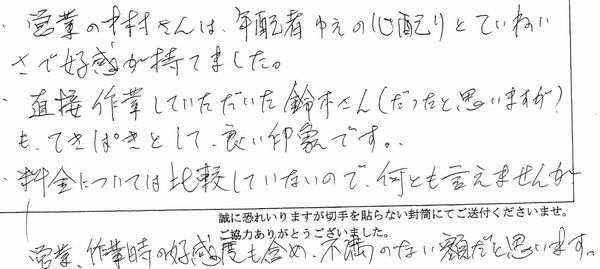 ・営業の木村さんは、年配者ゆえの心配りとていねい
さで好感が持てました。
・直接作業していただいた鈴木さん(だったと思いますが)
も、てきぱきとして、良い印象です。
・料金については比較していないので、何とも言えませんが
誠に恐れいりますが切手を貼らない封筒にてご送付くださいませ。
ご協力ありがとうございました。
営業、作業時の好感度も含め、不満のない額だと思います。